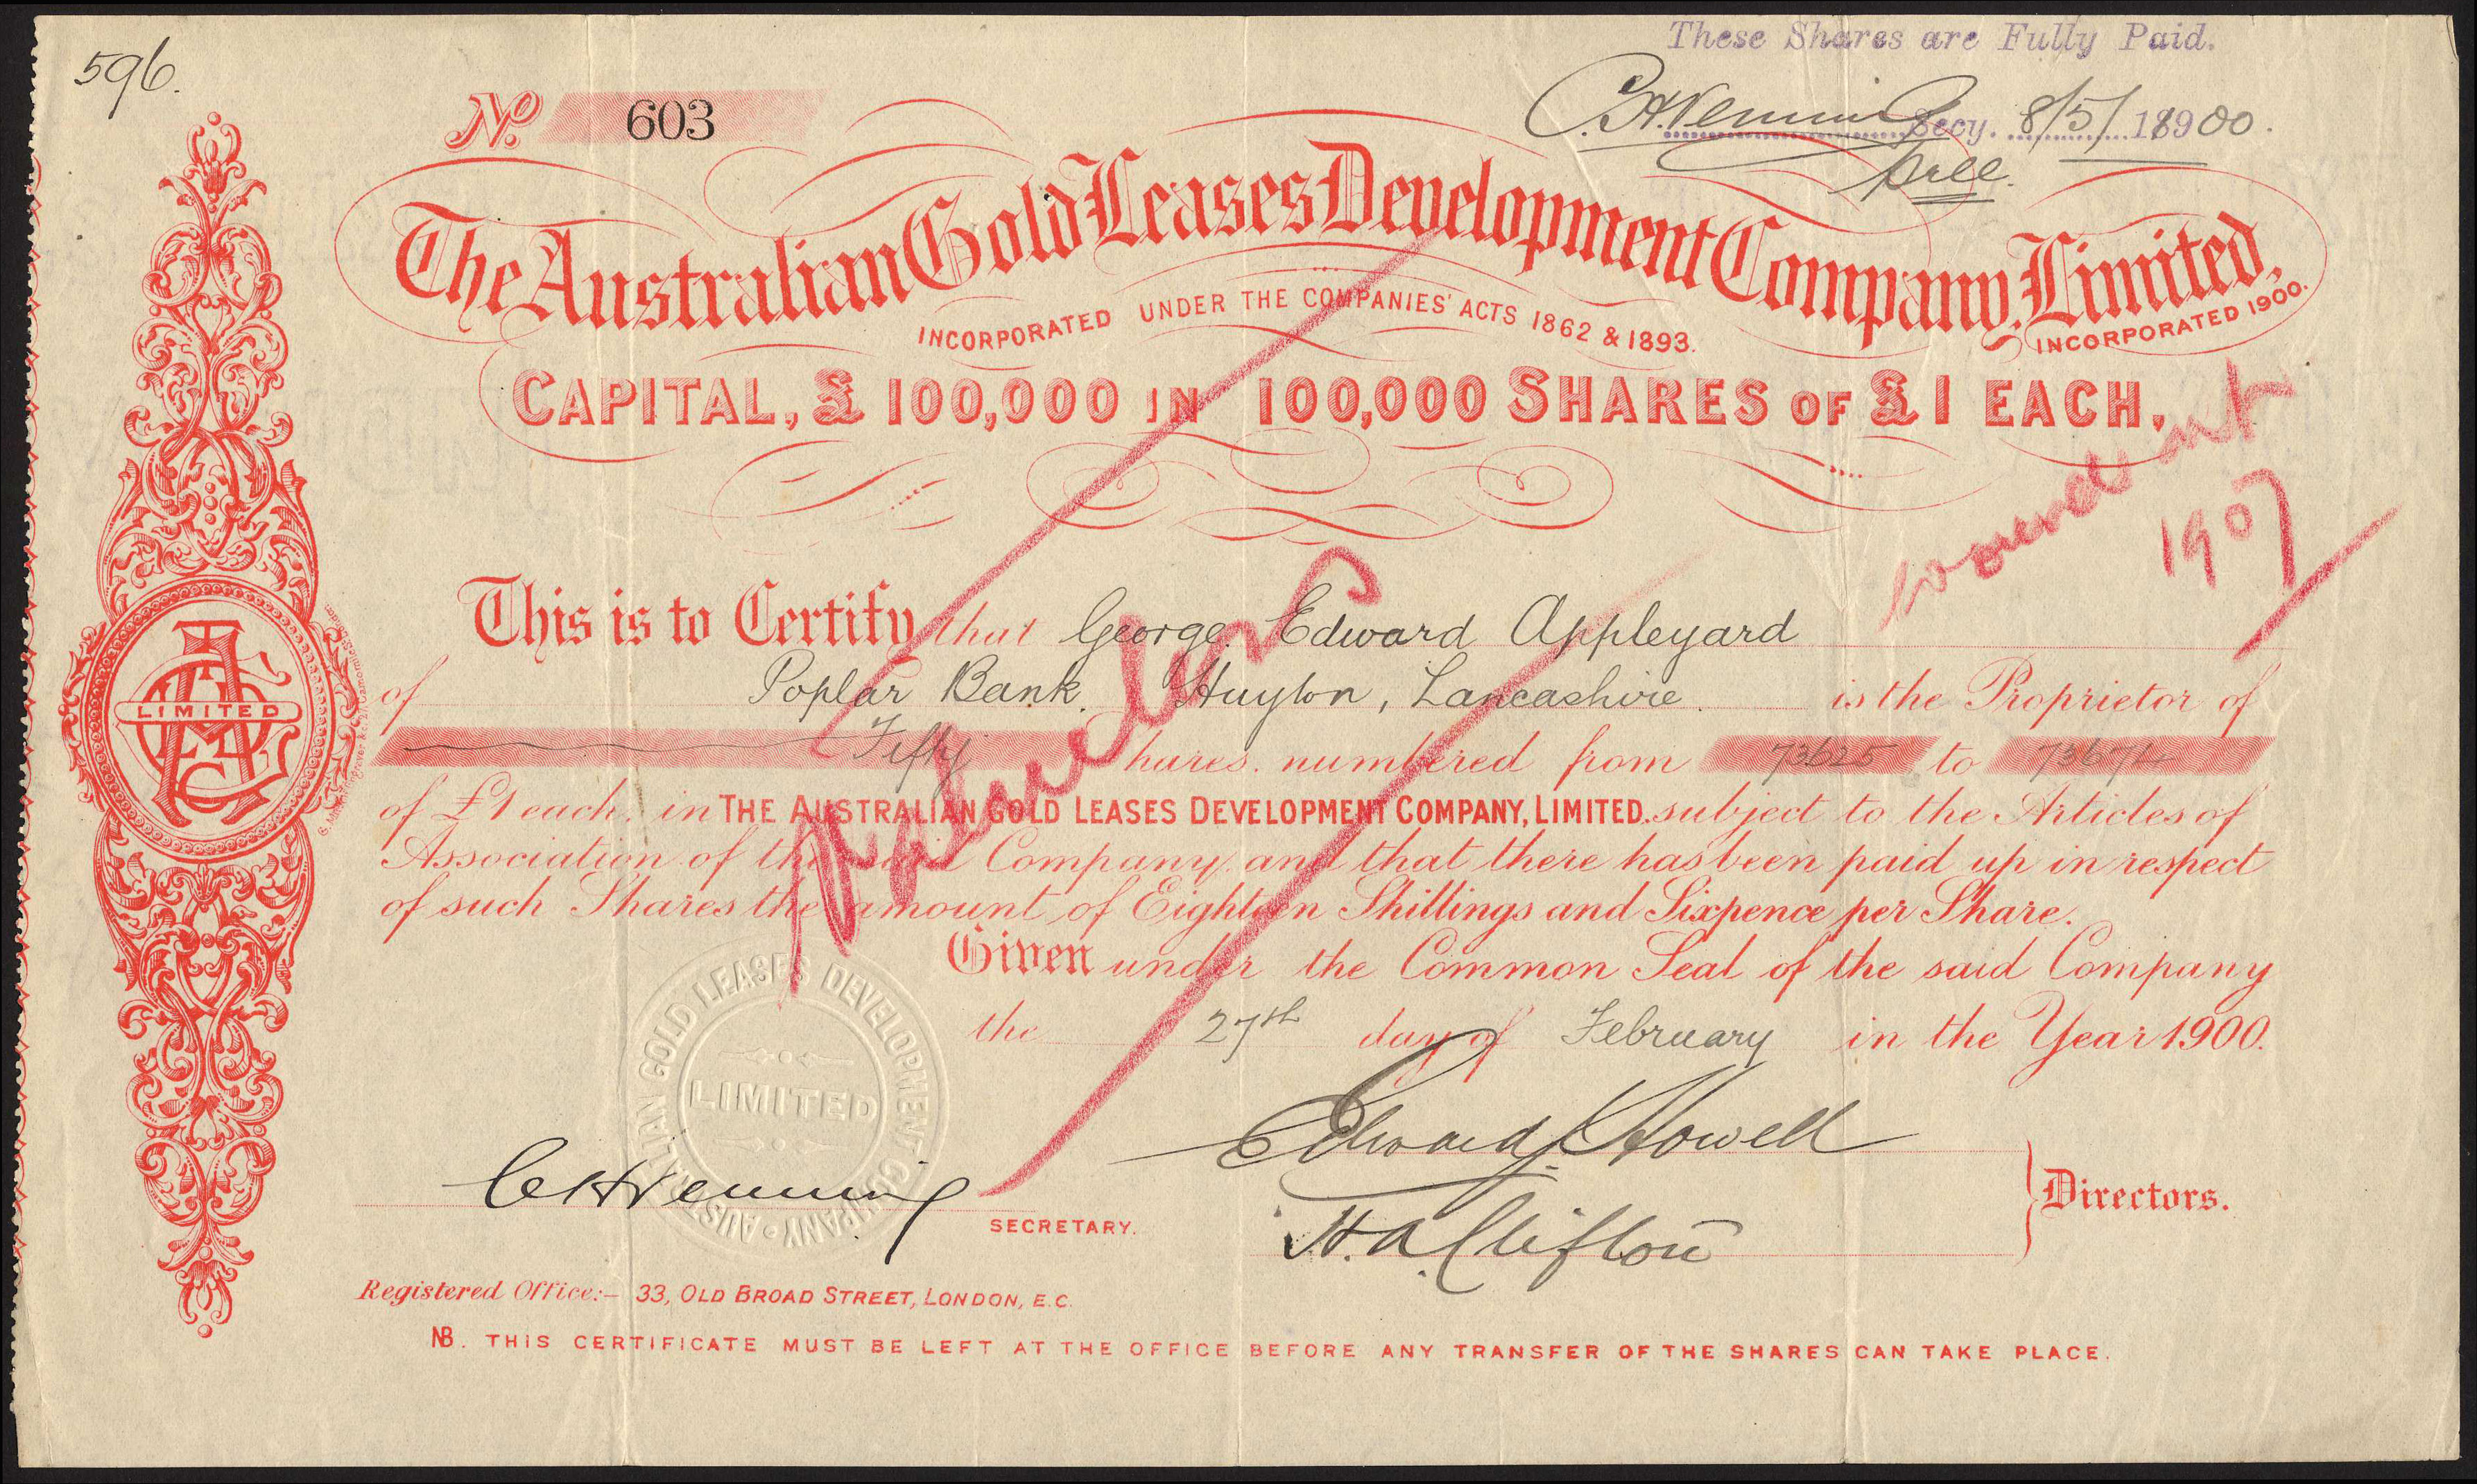 These Shares are Fully Paid.
596.
No. 603
Secy. 8/5/1900.
The Australian Gold Leases Development Company, Limited,
INCORPORATED UNDER THE COMPANIES' ACTS 1862 & 1893.
INCORPORATED 1900.
CAPITAL, £100,000 IN 100,000 SHARES OF £1 EACH.
1907
This is to Certify that George Edward Appleyard
of Poplar Bank, Huyton, Lancashire. is the Proprietor of
Fifty Shares, numbered from 73625 to 73674
of £1 each, in THE AUSTRALIAN GOLD LEASES DEVELOPMENT COMPANY, LIMITED. subject to the Articles of
Association of the said Company, and that there has been paid up in respect
of such Shares the amount of Eighteen Shillings and Sixpence per Share.
Given under the Common Seal of the said Company
the 27th day of February in the Year 1900.
LIMITED
AUSTRALIAN GOLD LEASES DEVELOPMENT COMPANY
LIMITED
Edward J. Howell
C H Venning
SECRETARY.
H. A. Clifton
Directors.
Registered Office:- 33, OLD BROAD STREET, LONDON, E.C.
NB. THIS CERTIFICATE MUST BE LEFT AT THE OFFICE BEFORE ANY TRANSFER OF THE SHARES CAN TAKE PLACE.